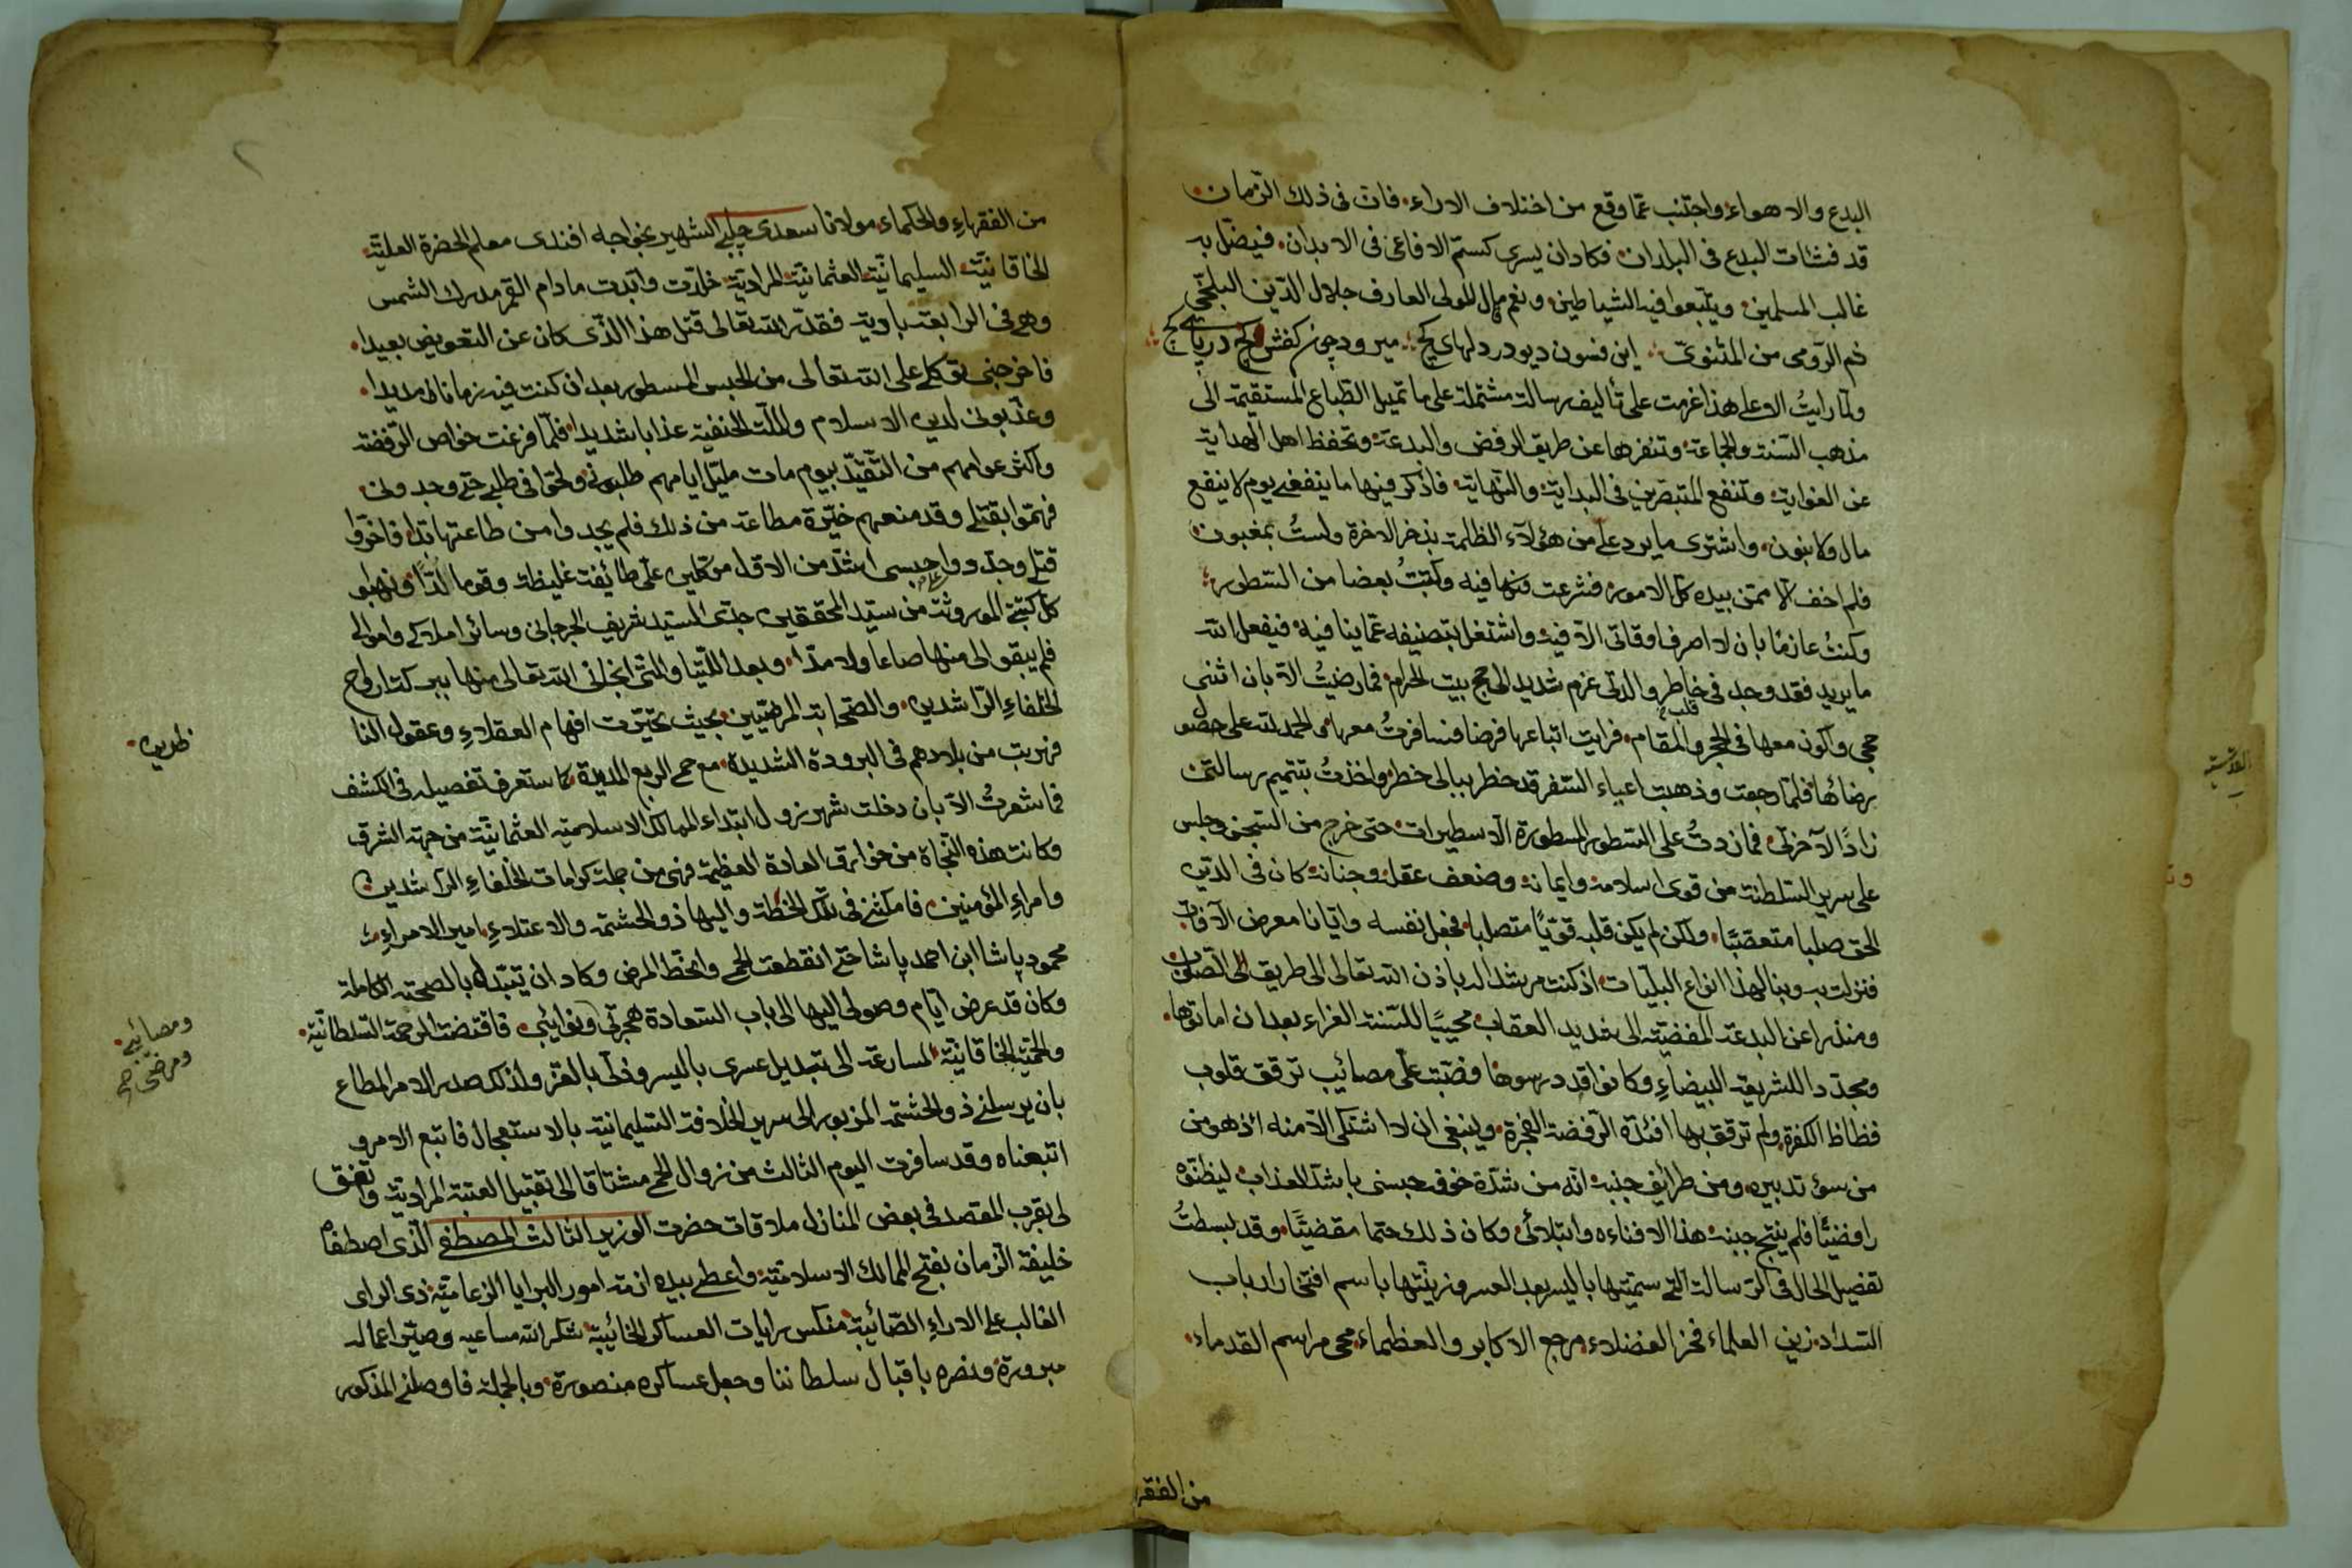 البدع والاهواء واجتنب عما وقع من اختلاف الاراء فان فى ذلك الزمان
قد فشات البدع فى البلدان فكاد ان يسرى كسم الافاعى فى الابدان فيضل به
غالب المسلمين ويتبعوا فيه الشياطين ونعم ما قال المولى العارف جلال الدين البلخى
ثم الرومى من المثنوى اين فسون ديو در دلهاى كج ميرود چون كفش كج در پاى كج
ولما رايت الاعلى هذا عزمت على تأليف رسالة مشتملة على ما تميل الطباع المستقيمة الى
مذهب السنة والجماعة وتنفرها عن طريق الرفض والبدعة وتحفظ اهل الهداية
عن الغواية وتنفع المتبصرين فى البداية والنهاية فاذكر فيها ما ينفعنى يوم لا ينفع
مال ولا بنون واشترى ما يرد على من هؤلاء الظلمة بذخر الاخرة ولست بمغبون
فلم اخف الا ممن بيده كل الامور فشرعت فيه وكتبت بعضا من السطور
وكنت عازما بان لا اصرف اوقاتى الا فيه واشتغل بتصنيفه عما ينافيه فيفعل الله
ما يريد فقد وجد فى خاطر والدتى عزم شديد الى حج بيت الحرام فما رضيت الا بان اثنى
حجى واكون معها فى الحجر والمقام فرايت اتباعها فرضا فسافرت معها الحمد لله على حصول
قلب
برضائها فلما رجعت وذهبت اعياء السفر قد خطر ببالى خطر واخذت بتتميم رسالتى
زادا لآخرتى فما زدت على السطور المسطورة الا سطيرات حتى خرج من السجن وجلس
على سرير السلطنة من قوى اسلامه وايمانه وضعف عقله وجنانه كان فى الدين
الحق صلبا متعصبا ولكن لم يكن قلبه قويا متصلبا فجعل نفسه وايانا معرض الآفات
فنزلت به وبنا لهذا انواع البليات اذ كنت مرشدا له باذن الله تعالى الى طريق الصواب
ومنذرا عن البدعة المفضية الى شديد العقاب محييا للسنة الغراء بعد ان اماتوها
ومجددا للشريعة البيضاء وكانوا قد رسوها فصبت على مصائب ترقق قلوب
فظاظ الكفرة ولم ترقق بها افئدة الرفضة الفجرة وينبغى ان لا اشتكى الا منه اذ هو من
من سوء تدبيره ومن طرائف جنبه انه من شدة خوفه حبسنى باشد العذاب ليظنوه
رافضيا فلم ينتج جبنه هذا الا فناءه وابتلائى وكان ذلك حتما مقضيا وقد بسطت
تفصيل الحال فى الرسالة التى سميتها باليسر بعد العسر وزينتها باسم افتخار ارباب
السداد زين العلماء فخر الفضلاء مرجع الاكابر والعظماء محى مراسم القدماء
من الفقها
من الفقهاء والحكماء مولانا سعدى چلبى الشهير بخواجه افندى معلم الحضرة العلية
الخاقانية السليمانية العثمانية المرادية خلدت وابدت مادام القمر مدرك الشمس
وهى فى الرابعة باوية فقدر الله تعالى قتل هذا الذى كان عن التعويض بعيدا
فاخرجنى توكلى على الله تعالى من الحبس المسطور بعد ان كنت فيه زمانا مديدا
وعذبونى لدين الاسلام والملة الحنفية عذابا شديدا فلما فرغت خواص الرفضة
واكثر عوامهم من التقيد بيوم مات طلبونى ولحوا فى طلبى حتى وجدونى
فهموا بقتلى وقد منعهم خيرة مطاعة من ذلك فلم يجدوا من طاعتها بدا فاخروا
قتلى وجددوا حبسى اشد من الاول موكلين على طائفة غليظة وقوما لدا ونهبوا
كل كتبى الموروثة من سيد المحققين جدى السيد شريف الجرجانى وسائر املاكى واموالى
فلم يبقوا لى منها صاعا ولا مدا وبعد اللتيا والتى انجانى الله تعالى منها ببركة ارواح
الخلفاء الراشدين والصحابة المرضيين بحيث تحيرت افهام العقلاء وعقول النا
ظرين
فهربت من بلادهم فى البرودة الشديدة مع حمى الربع المديدة كما ستعرف تفصيله فى الكشف
فما شعرت الا بان دخلت شهرزول ابتداء الممالك الاسلامية العثمانية من جهة الشرق
وكانت هذه النجاة من خوارق العادة العظيمة فهى من جملة كرامات الخلفاء الراشدين
وامراء المؤمنين فامكثنى فى تلك الخطة واليها ذو الحشمة والاعتلاء امير الامراء
محمود پاشا ابن احمد پاشا حتى انقطعت الحمى وانحط المرض وكاد ان يتبدل بالصحة الكاملة
وكان قد عرض ايام وصولى اليها الى باب السعادة هجرتى ونوائبى فاقتضت المرحمة السلطانية
ومصائبى
ومرضى صح
والحمية الخاقانية المسارعة الى تبديل عسرى باليسر وذلى بالعز ولذلك صدر الامر المطاع
بان يرسلنى ذو الحشمة المزبور الى سرير الخلافة السليمانية بالاستعجال فاتبع الامر و
اتبعناه وقد سافرت اليوم الثالث من زوال الحمى مشتاقا الى تقبيل العتبة المرادية واتفق
لى بقرب المقصد فى بعض المنازل ملاقات حضرت الوزير الثالث المصطفى الذى اصطفاه
خليفة الزمان بفتح الممالك الاسلامية واعطى بيده ازمة امور البرايا الزعامية ذى الراى
الغالب على الاراء الصائبة منكس رايات العساكر الخائبة شكر الله مساعيه وصير اعماله
مبرورة ونصره باقبال سلطاننا وجعل عساكره منصورة وبالجملة فاوصلنى المذكور